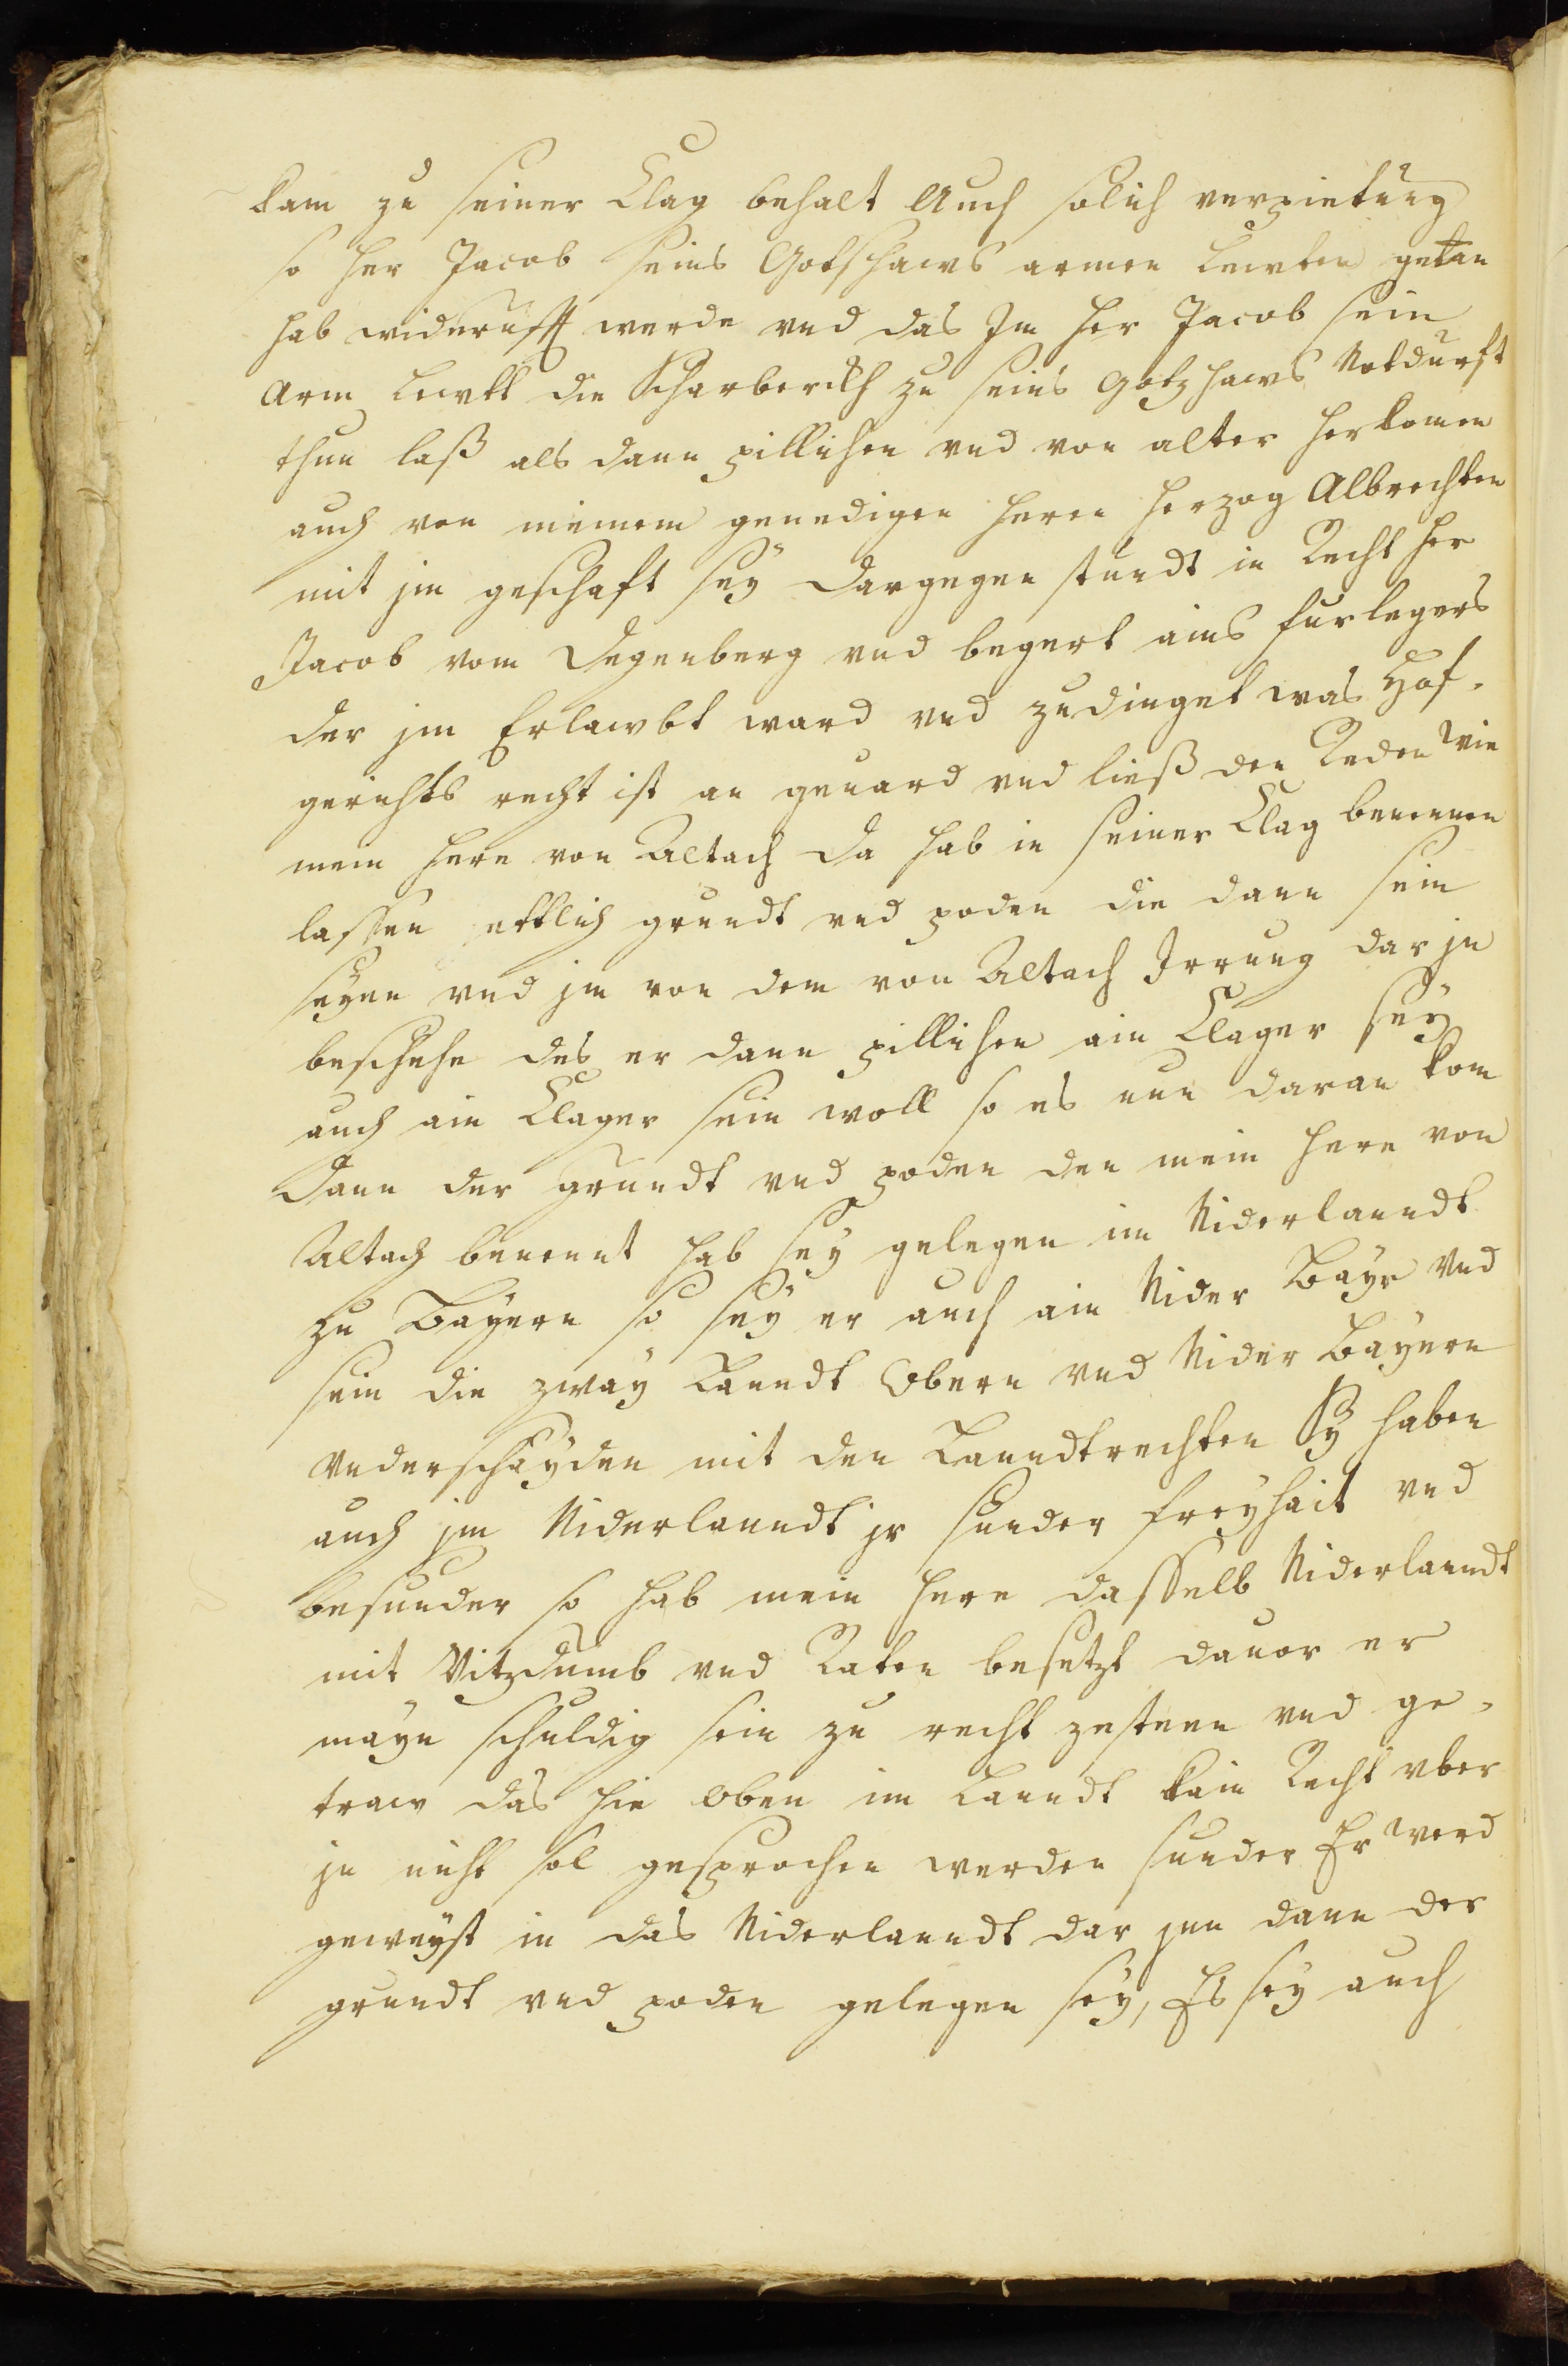 kam zu seiner Clag behalt Auch solich verpietung
so her Jacob seins Gotshaws armen Lewten getan
hab widerufft werde vnd das Im her Jacob sein
Arm Lewtt die Scharberckh zu seins Gotzhaws Notdurft
thun laß als dann pillichen vnd von alter herkomen
auch von meinem genedigen heren Herzog Albrechten
mit jm geschaft sey Dargegen stundt in Recht her
Jacob vom Degenberg vnd begert ains furlegers
der jm Erlawbt ward vnd zudinget was Hof-
gerichts recht ist an geuard vnd ließ den Reden Wie
mein here von Altach da hab in seiner Clag benennen
lassen ettlich grundt vnd poden die dann sein
seyen vnd jm von dem von Altach Irrung dar jn
beschehe des er dann pillichen ain Clager sey
auch ain Clager sein woll so es nun daran kom
Dann der grundt vnd poden den mein here von
Altach benennt hab sey gelegen im Niderlanndt
zu Bayern so sey er auch ain Nider Bayr Vnd
sein die zway Lanndt Obern vnd Nider Bayern
Vnderschayden mit den Lanndtrechten Sy haben
auch jm Niderlanndt jr sunder freyhait vnd
besunder so hab mein here dasselb Niderlanndt
mit Vitzdumb vnd Raten besetzt dauor er
mayn schuldig sein zu recht zesteen vnd ge-
traw das hie oben im Lanndt kain Recht vber
jn nicht sol gesprochen werden sunder Er werd
geweyst in das Niderlanndt dar jnn dann der
grundt vnd poden gelegen sey, Es sey auch